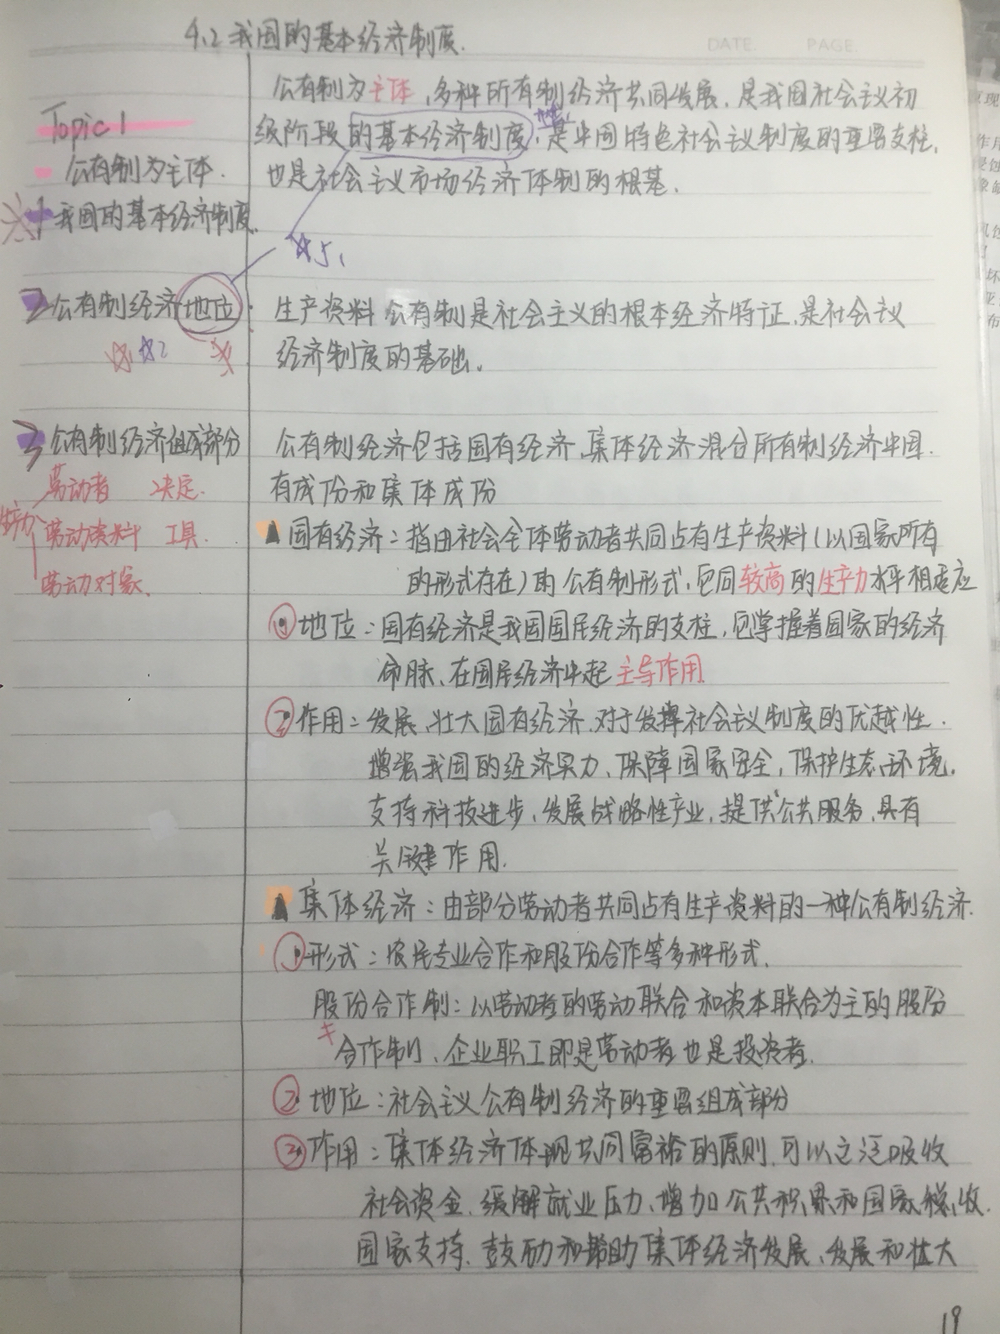 4.2 我国的基本经济制度.
DATE. PAGE.
公有制为主体,多种所有制经济共同发展,是我国社会主义初
Topic 1
级阶段的基本经济制度,是中国特色社会主义制度的重要支柱,
公有制为主体.
也是社会主义市场经济体制的根基.
1 我国的基本经济制度.
☆5.
2 公有制经济地位.
生产资料公有制是社会主义的根本经济特征,是社会主义
☆ ☆2
经济制度的基础。
3 公有制经济组成部分
公有制经济包括国有经济,集体经济,混合所有制经济中国.
劳动者 决定.
有成份和集体成份
劳动资料 工具.
国有经济:指由社会全体劳动者共同占有生产资料(以国家所有
劳动对象.
的形式存在)的公有制形式,它同较高的生产力水平相适应
① 地位:国有经济是我国国民经济的支柱,它掌握着国家的经济
命脉,在国民经济中起主导作用
② 作用:发展、壮大国有经济,对于发挥社会主义制度的优越性.
增强我国的经济实力,保障国家安全,保护生态环境.
支持科技进步,发展战略性产业,提供公共服务,具有
关键作用.
集体经济:由部分劳动者共同占有生产资料的一种公有制经济.
① 形式:农民专业合作和股份合作等多种形式.
股份合作制:以劳动者的劳动联合和资本联合为主的股份
合作制,企业职工即是劳动者也是投资者.
② 地位:社会主义公有制经济的重要组成部分
③ 作用:集体经济体现共同富裕的原则,可以广泛吸收
社会资金,缓解就业压力,增加公共积累和国家税收.
国家支持、鼓励和帮助集体经济发展,发展和壮大
19